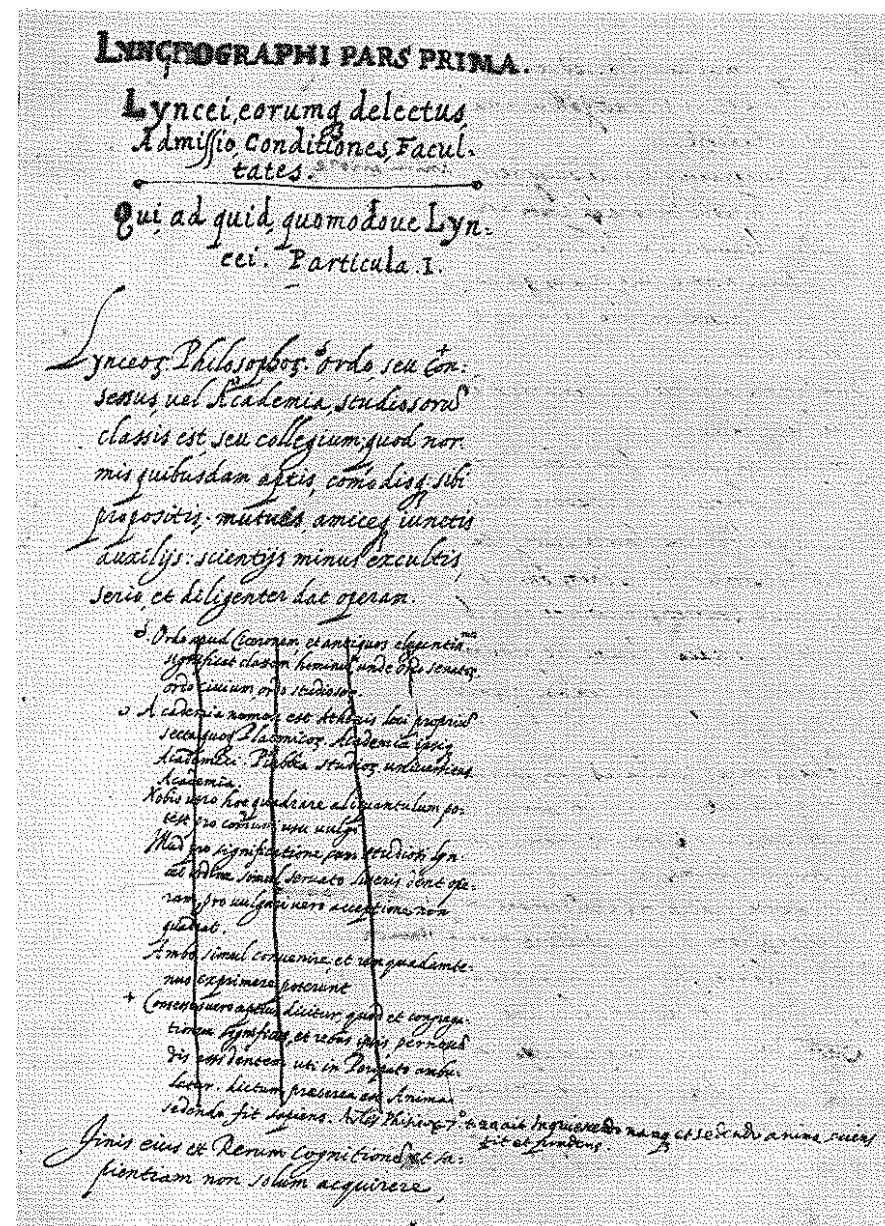 LYNCEOGRAPHI PARS PRIMA.
Lyncei, eorumq delectus,
Admissio, Conditiones, Facul-
tates.
Qui, ad quid, quomodoue Lyn-
cei. Particula .I.
Lynceoꝝ Philosophoꝝ. ordo, seu Con-
sessus, uel Academia, studiosorū
classis est, seu collegium, quod nor
mis quibusdam aptis, comodisq; sibi
propositis, mutuis, amiceq iunctis
auxilijs: scientijs minus excultis,
serio, et diligenter dat operam.
Ordo apud Ciceronem, et antiquos
significat classem hominū, unde ordo senatoꝝ,
ordo ciuium ordo studiosoꝝ.
Academia nomen est Athenis loci proprium
Platonicoꝝ. Academia
Academici. studioꝝ uniuersitas
Academia.
Nobis uero hoc quadrare aliquantulum po-
test pro comuni usu uulgi.
pro significatione studiosi Lyn-
cei ordine simul seruato dent ope-
ram, pro uulgari uero acceptione non
quadrat.
Ambo simul conuenire, et rem quadamte-
nus exprimere poterunt
+ Consessus uero aptius dicitur quod et congrega-
tionem significet, et rebus
uti in Peripato ambu-
latur. dictum praeterea est Anima
sedendo fit sapiens. 7° anima
fit et prudens.
Finis eius est Rerum Cognitionē, et sa-
pientiam non solum acquirere,